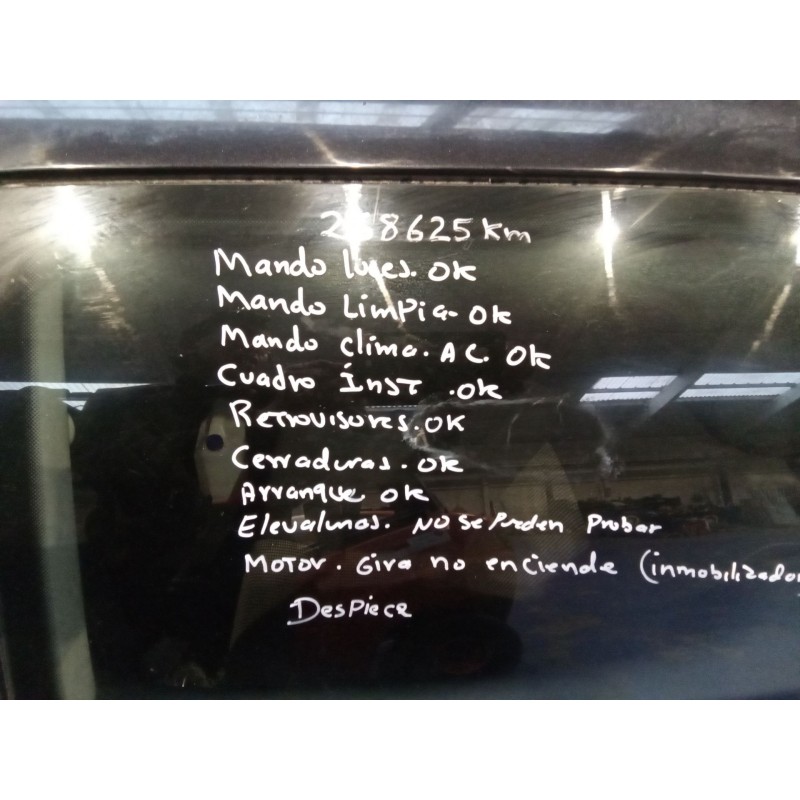 Mando luces. OK
Mando Limpia- OK
Mando clima. AC. OK
Cuadro Inst .OK
Retrovisores. OK
Cerraduras. OK
Arranque OK
Elevalunas. NO SE Pueden Probar
MOTOR. Gira no enciende (inmobilizador
DesPiece